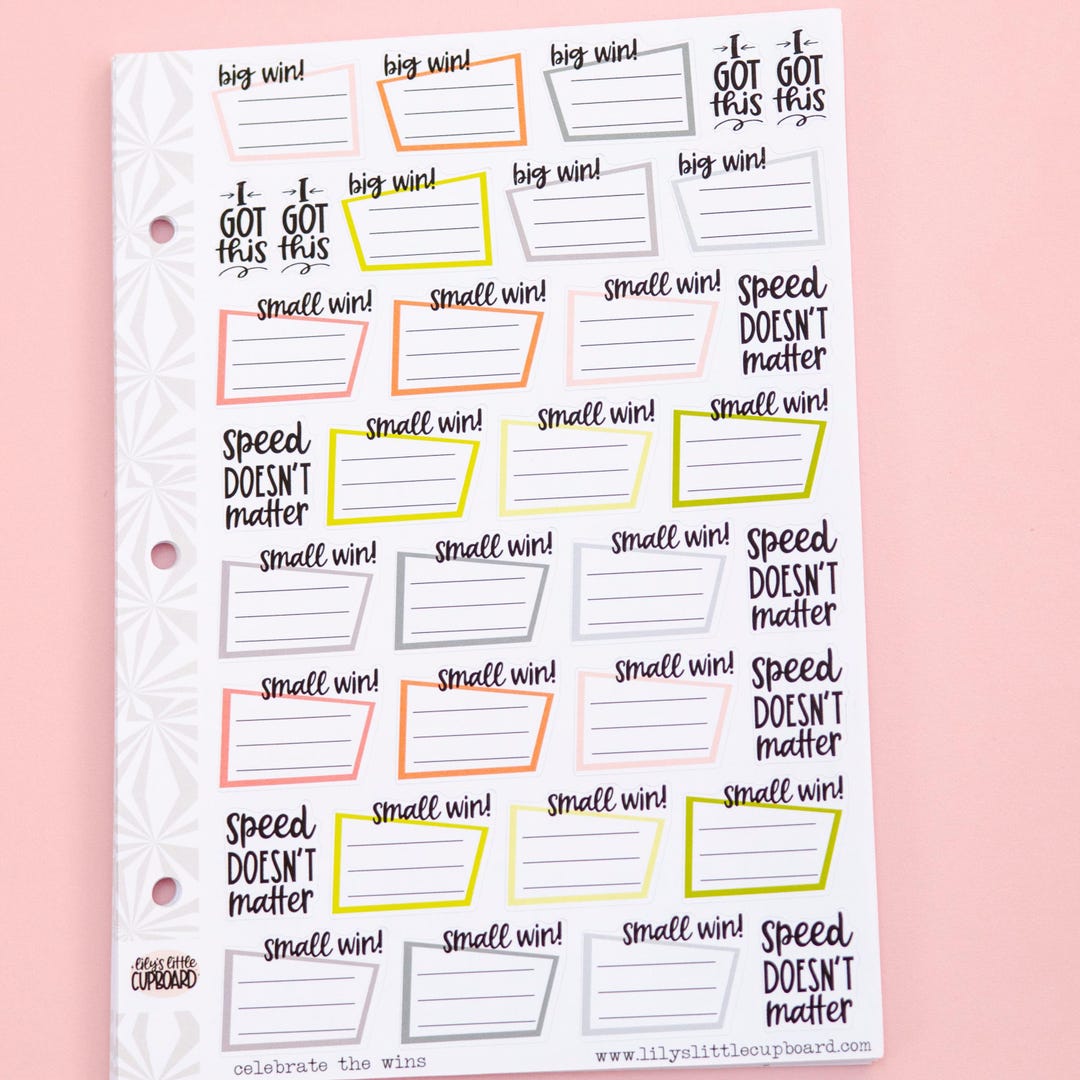 big win!
big win!
big win!
→I←
GOT
this
→I←
GOT
this
→I←
GOT
this
→I←
GOT
this
big win!
big win!
big win!
small win!
small win!
small win!
speed
DOESN'T
matter
speed
DOESN'T
matter
small win!
small win!
small win!
small win!
small win!
small win!
speed
DOESN'T
matter
small win!
small win!
small win!
speed
DOESN'T
matter
speed
DOESN'T
matter
small win!
small win!
small win!
small win!
small win!
small win!
speed
DOESN'T
matter
lily's little
CUPBOARD
celebrate the wins
www.lilyslittlecupboard.com